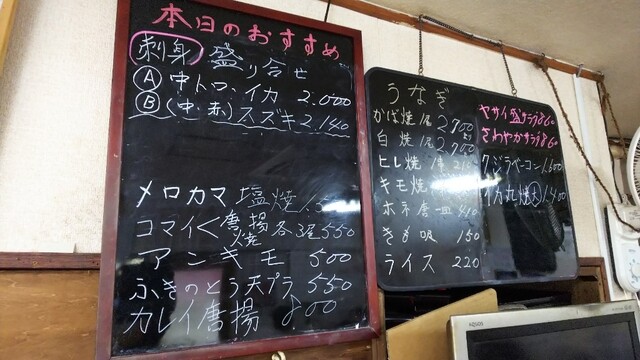 本日のおすすめ
刺身 盛り合せ
Ⓐ 中トロ、イカ 2.000
Ⓑ (中・赤)スズキ 2.140
メロカマ塩焼
コマイ<唐揚 焼 各3尾 550
アンキモ 500
ふきのとう天プラ 550
カレイ唐揚 800
うなぎ
かば焼1尾 2700
白焼1尾 2,700
ヒレ焼
キモ焼
ホネ唐一皿 410
きも吸 150
ライス 220
ヤサイ盛サラダ 860
さわやかサラダ 860
クジラベーコン 1.600
イカ丸焼(大) 1.400